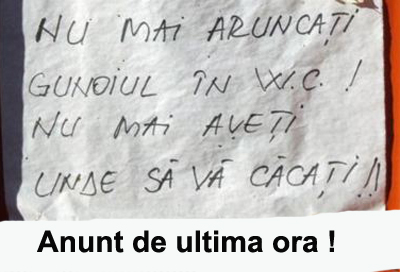 NU MAI ARUNCAȚI
GUNOIUL ÎN W.C. !
NU MAI AVEȚI
UNDE SĂ VĂ CĂCAȚI!!
Anunt de ultima ora !